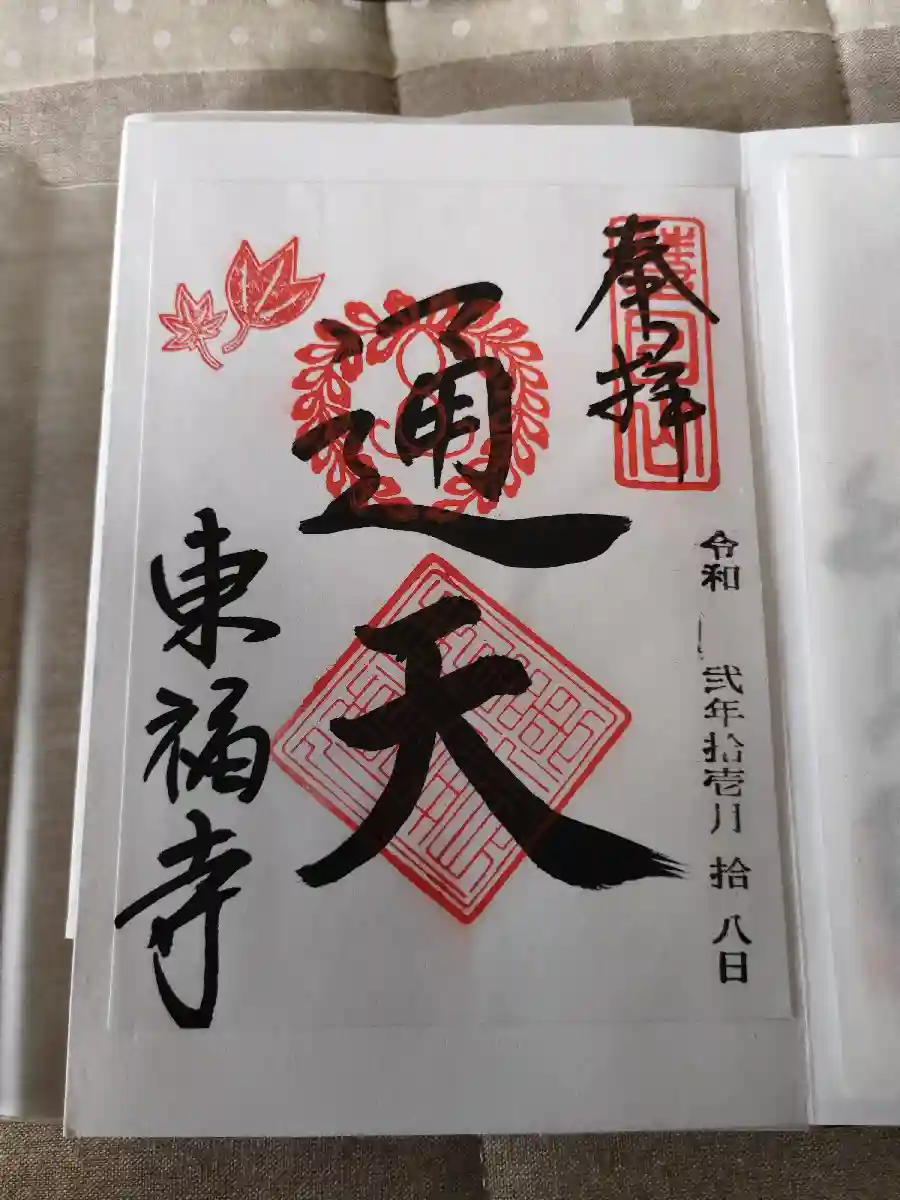 奉拝
令和 弐年拾壱月 拾八日
通天
東福寺